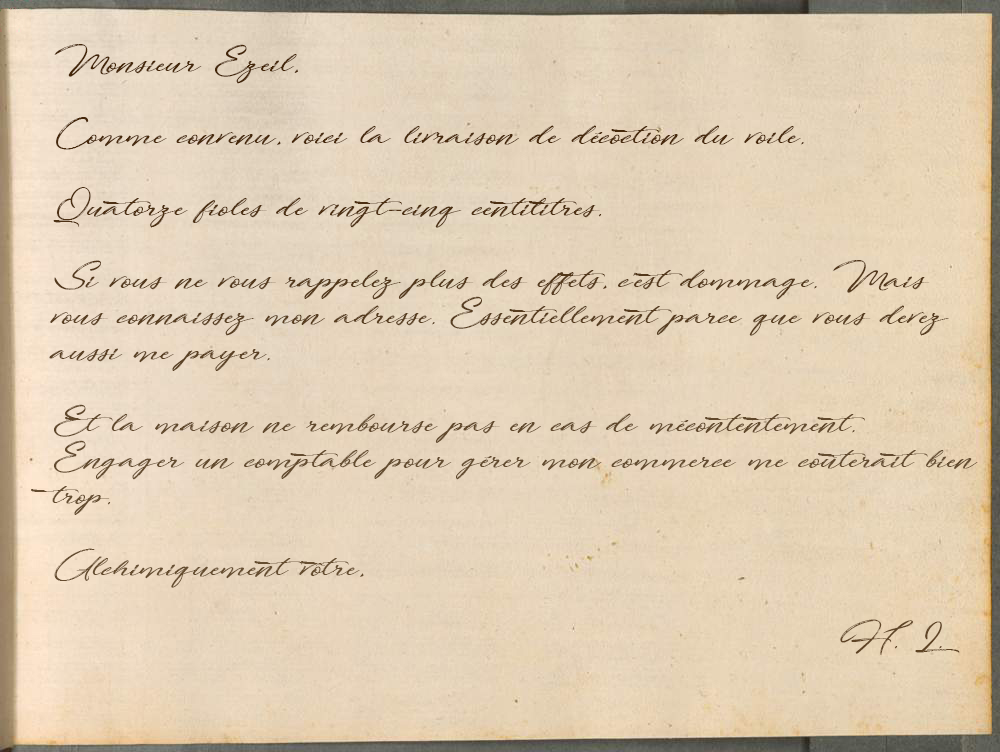 Monsieur Ezeil,
Comme convenu, voici la livraison de décoction du voile.
Quatorze fioles de vingt-cinq centilitres.
Si vous ne vous rappelez plus des effets, c'est dommage. Mais
vous connaissez mon adresse. Essentiellement parce que vous devez
aussi me payer.
Et la maison ne rembourse pas en cas de mécontentement.
Engager un comptable pour gérer mon commerce me coûterait bien
trop.
Alchimiquement vôtre,
H. Q.